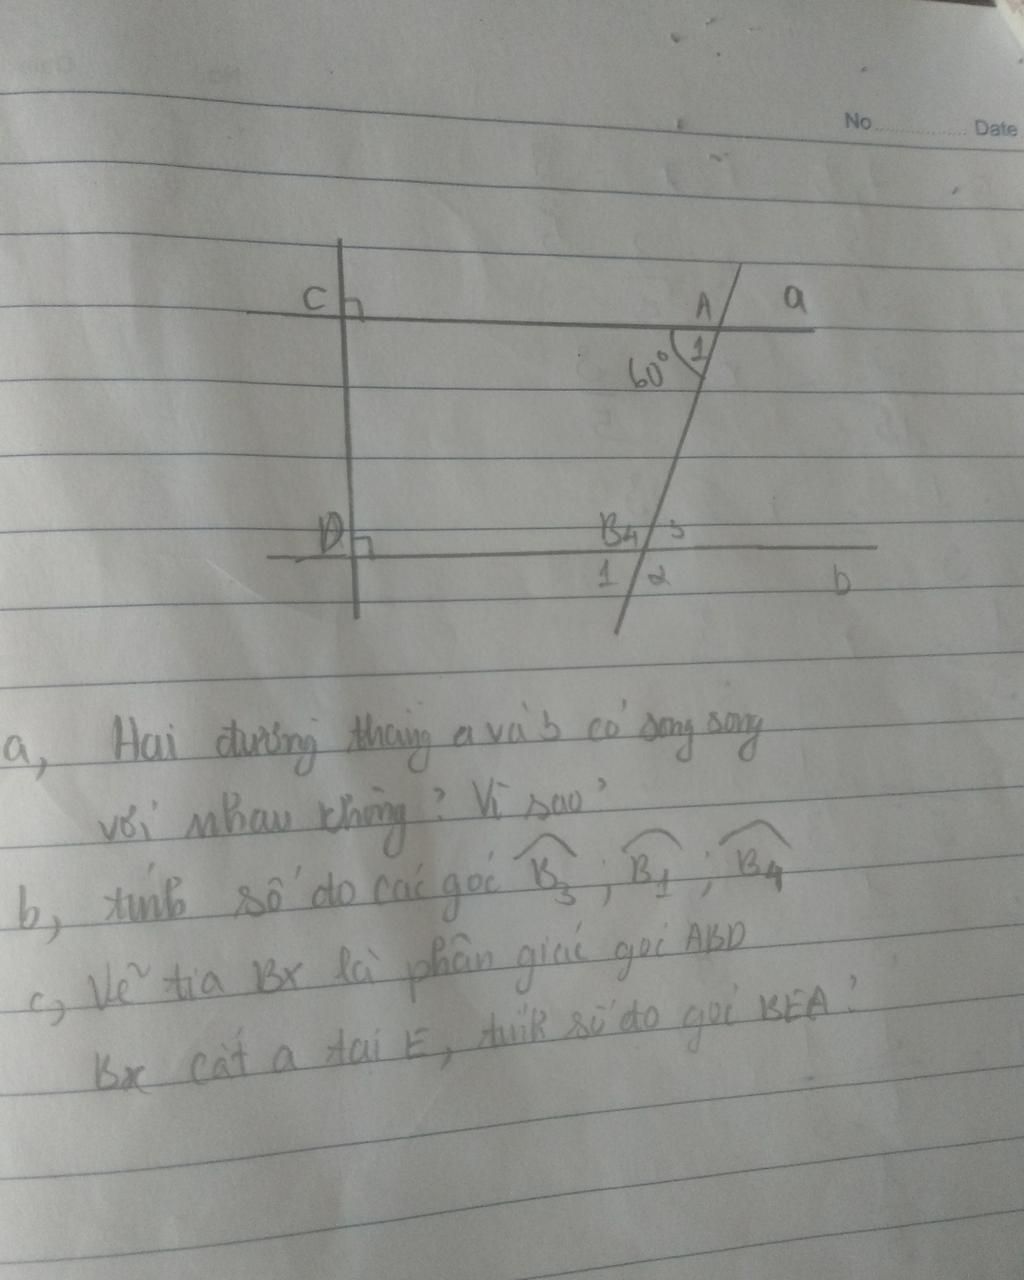 No Date
C A a
60° 1
D B4 3
1 2 b
a, Hai đường thẳng a và b có song song
với nhau không? Vì sao?
b, tính số đo các góc B3; B1; B4
c, Vẽ tia Bx là phân giác góc ABD
Bx cắt a tại E, tính số đo góc BEA?